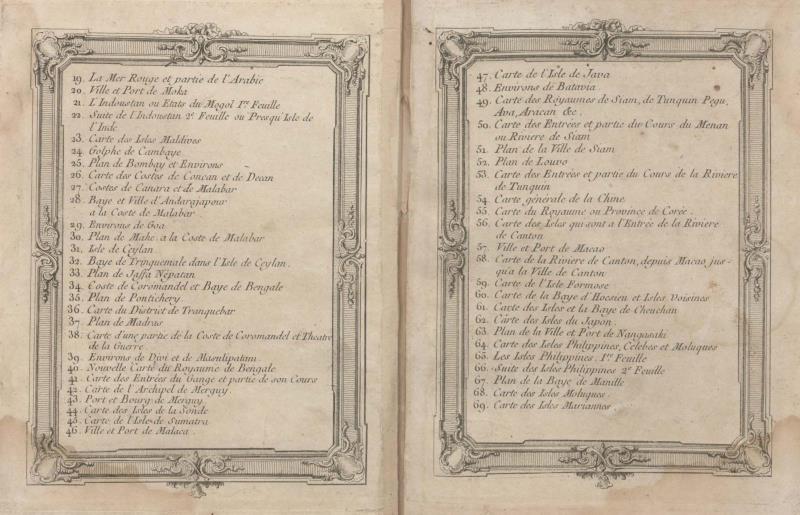 19. La Mer Rouge et partie de l'Arabie
20. Ville et Port de Moka
21. L'Indoustan ou Etats du Mogol 1re Feuille
22. Suite de l'Indoustan 2e Feuille ou Presqu'Isle de
l'Inde
23. Carte des Isles Maldives
24. Golphe de Cambaye
25. Plan de Bombay et Environs
26. Carte des Costes de Concan et de Decan
27. Costes de Canara et de Malabar
28. Baye et Ville d'Andarajapour
a la Coste de Malabar
29. Environs de Goa
30. Plan de Mahe a la Coste de Malabar
31. Isle de Ceylan
32. Baye de Trinquemale dans l'Isle de Ceylan.
33. Plan de Jaffa Nepatan
34. Coste de Coromandel et Baye de Bengale
35. Plan de Pontichery
36. Carte du District de Tranquebar
37. Plan de Madras
38. Carte d'une partie de la Coste de Coromandel et Theatre
de la Guerre
39. Environs de Divi et de Masulipatam
40. Nouvelle Carte du Royaume de Bengale
41. Carte des Entrées du Gange et partie de son Cours
42. Carte de l'Archipel de Merguy
43. Port et Bourg de Merguy
44. Carte des Isles de la Sonde
45. Carte de l'Isle de Sumatra
46. Ville et Port de Malaca.
47. Carte de l'Isle de Java
48. Environs de Batavia
49. Carte des Royaumes de Siam, de Tunquin Pegu,
Ava, Aracan &c.
50. Carte des Entrées et partie du Cours du Menan
ou Riviere de Siam
51. Plan de la Ville de Siam
52. Plan de Louvo
53. Carte des Entrées et partie du Cours de la Riviere
de Tunquin
54. Carte générale de la Chine
55. Carte du Royaume ou Province de Corée.
56. Carte des Isles qui sont a l'Entrée de la Riviere
de Canton
57. Ville et Port de Macao
58. Carte de la Riviere de Canton, depuis Macao jus-
qu'a la Ville de Canton
59. Carte de l'Isle Formose
60. Carte de la Baye d'Hocsieu et Isles Voisines
61. Carte des Isles et la Baye de Cheuchan
62. Carte des Isles du Japon.
63. Plan de la Ville et Port de Nangasaki
64. Carte des Isles Philippines, Celebes et Moluques
65. Les Isles Philippines. 1re Feuille
66. Suite des Isles Philippines 2e Feuille
67. Plan de la Baye de Manille
68. Carte des Isles Moluques.
69. Carte des Isles Mariannes.